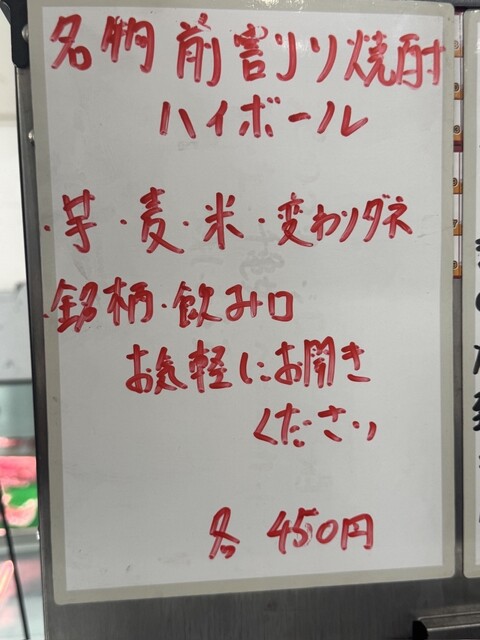 名物 前割り焼酎
ハイボール
・芋・麦・米・変わりダネ
・銘柄・飲み口
お気軽にお聞き
ください
各 450円